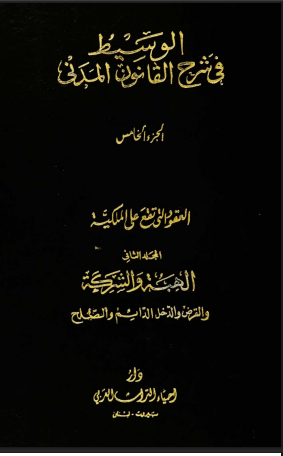 الوسيط
في شرح القانون المدني
الجزء الخامس
العقود التي تقع على الملكية
المجلد الثاني
الهبة والشركة
والقرض والدخل الدائم والصلح
دار
احياء التراث العربي
بيروت - لبنان